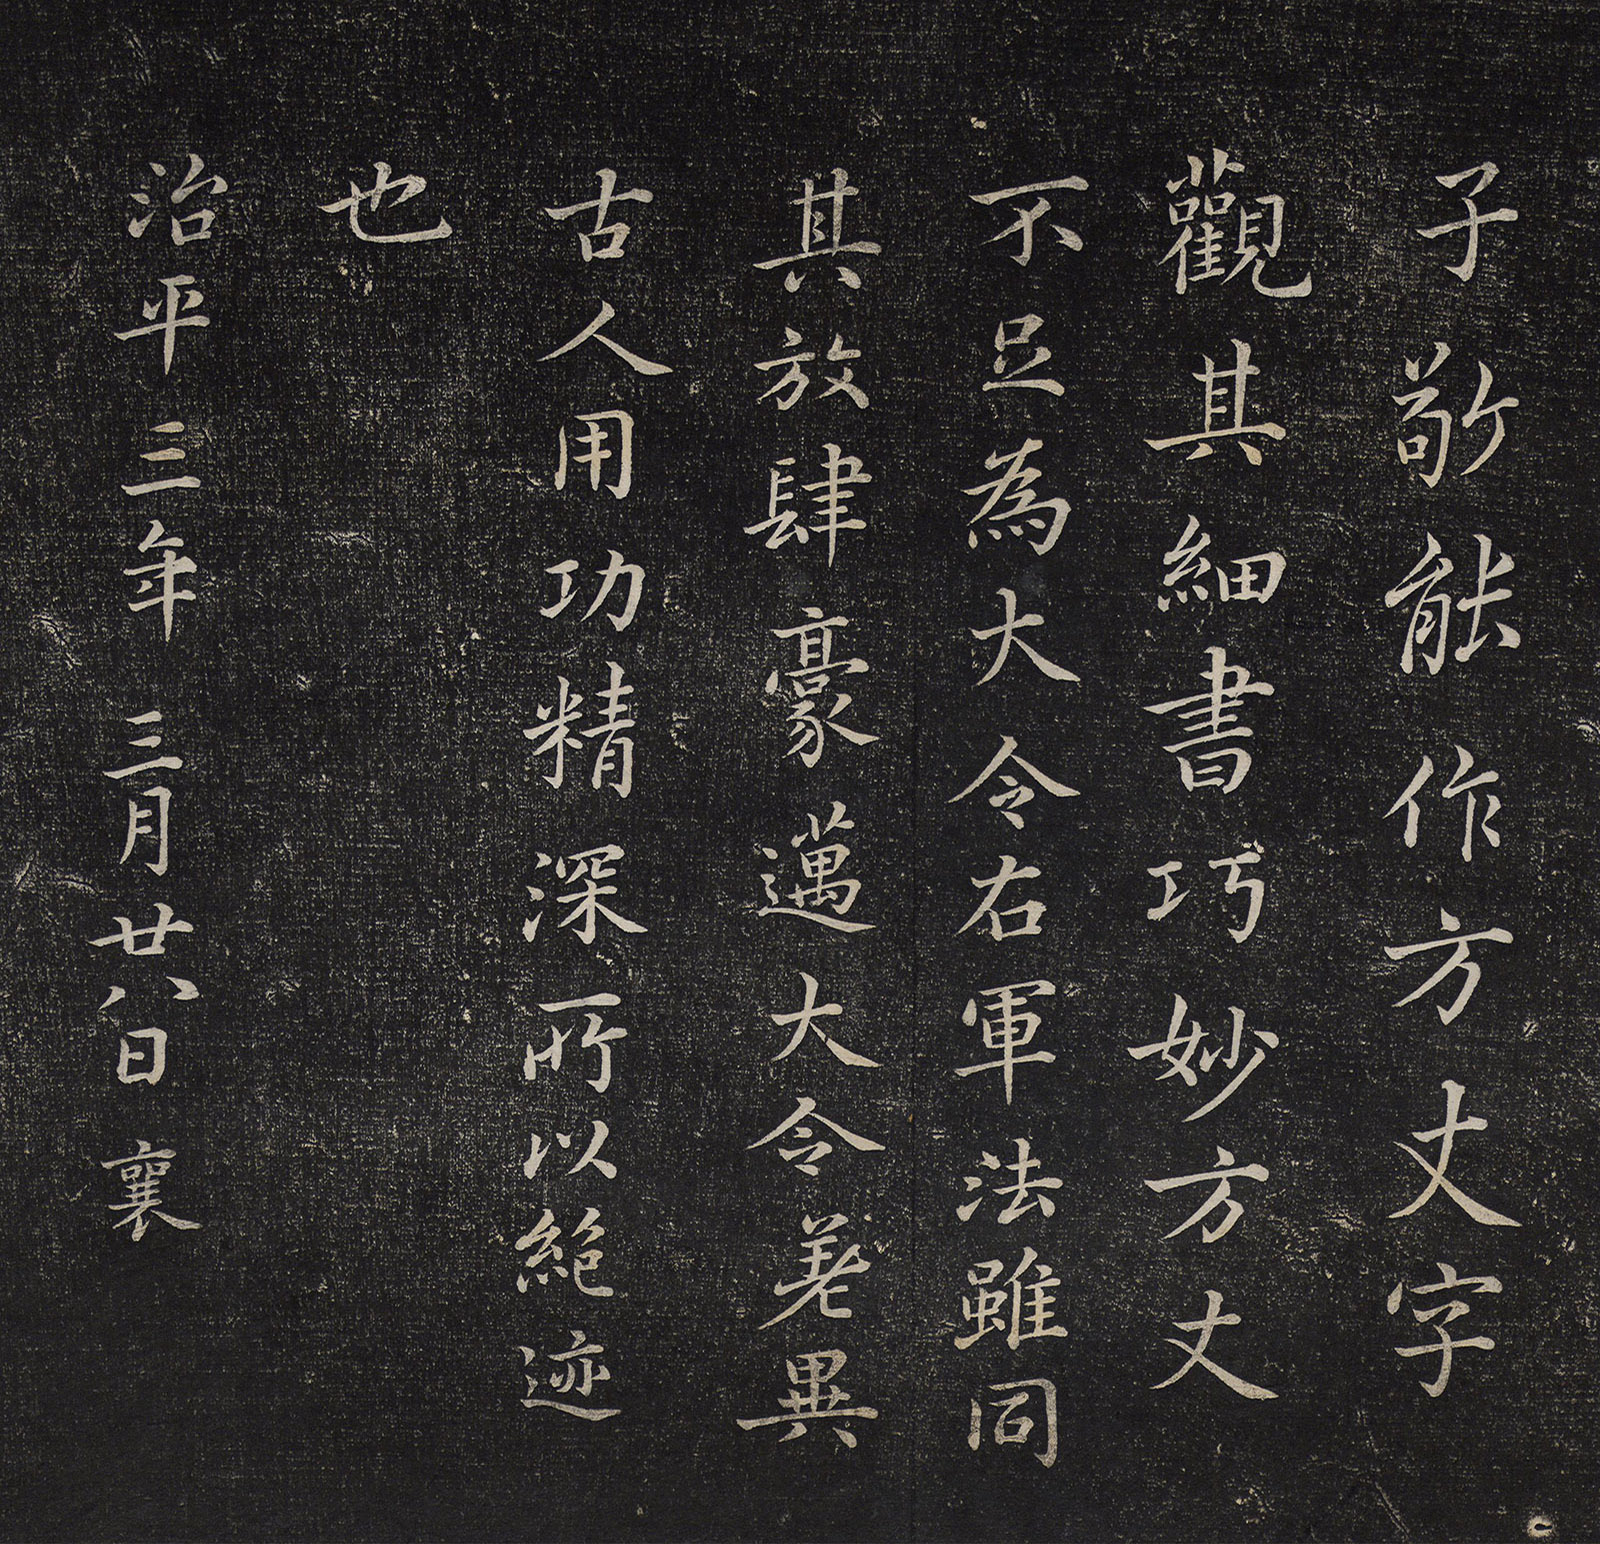 子敬能作方丈字
觀其細書巧妙方丈
不足為大令右軍法雖同
其放肆豪邁大令差異
古人用功精深所以絕迹
也
治平三年三月廿八日襄